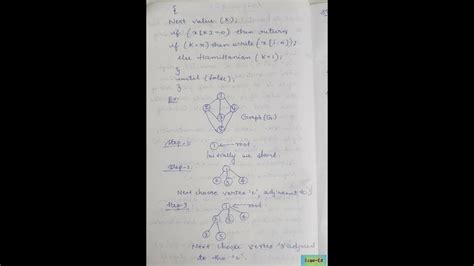 {
Next value (K);
if (x[K]=0) then return
if (K=n) then write (x[1:n]);
else Hamiltonian (K+1);
}
until (false);
}
Ex:
1
2
4
3
5
Graph (G)
Step-1: 1 ← root
Initially we start
Step-2
1
2 3 4
Next choose vertex '2' adjacent to
Step-3
1 ← root
2 3 4
3 5
Next choose vertex adjacent
to the '2'.